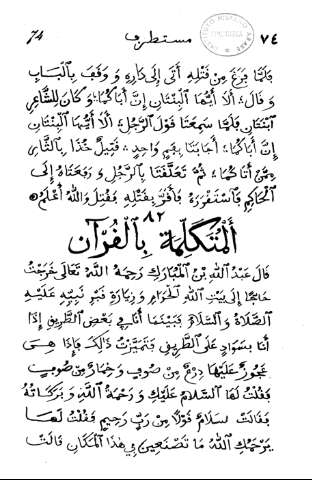 ٧٤ مستطرف 74
فَلَمَّا فَرَغَ مِن قَتْلِهِ أَتَى إِلَى دَارِهِ وَوَقَفَ بِالْبَابِ
وَقَالَ، أَلَا أَيُّهَا الْبِنْتَانِ إِنَّ أَبَاكُمَا، وَكَانَ لِلشَّاعِرِ
ابْنَتَانِ فَلَمَّا سَمِعَتَا قَوْلَ الرَّجُلِ، أَلَا أَيُّهَا الْبِنْتَانِ
إِنَّ أَبَاكُمَا، أَجَابَتَا بِفَمٍ وَاحِدٍ، قَتِيلٌ خُذَا بِالثَّارِ
مِمَّنْ أَتَاكُمَا، ثُمَّ تَعَلَّقَتَا بِالرَّجُلِ وَرَفَعَتَاهُ إِلَى
الْحَاكِمِ فَاسْتَقْرَرَهُ فَأَقَرَّ بِقَتْلِهِ فَقُتِلَ وَاللهُ أَعْلَمُ
٨٢
الْمُتَكَلِّمَة بِالْقُرْآن
قَالَ عَبْدُ اللهِ بْنُ الْمُبَارَكِ رَحِمَهُ اللهُ تَعَالَى خَرَجْتُ
حَاجًّا إِلَى بَيْتِ اللهِ الْحَرَامِ وَزِيَارَةِ قَبْرِ نَبِيِّهِ عَلَيْهِ
الصَّلَاةُ وَالسَّلَامُ فَبَيْنَمَا أَنَا فِي بَعْضِ الطَّرِيقِ إِذَا
أَنَا بِسَوَادٍ عَلَى الطَّرِيقِ فَتَمَيَّزْتُ ذَالِكَ فَإِذَا هِىَ
عَجُوزٌ عَلَيْهَا دِرْعٌ مِن صُوفٍ وَخِمَارٌ مِن صُوفٍ
فَقُلْتُ لَهَا السَّلَامُ عَلَيْكِ وَرَحْمَةُ اللهِ وَبَرَكَاتُهُ
فَقَالَتْ سَلَامٌ قَوْلًا مِن رَبٍّ رَحِيمٍ فَقُلْتُ لَهَا
يَرْحَمُكِ اللهُ مَا تَصْنَعِينَ فِي هٰذَا الْمَكَانِ قَالَتْ